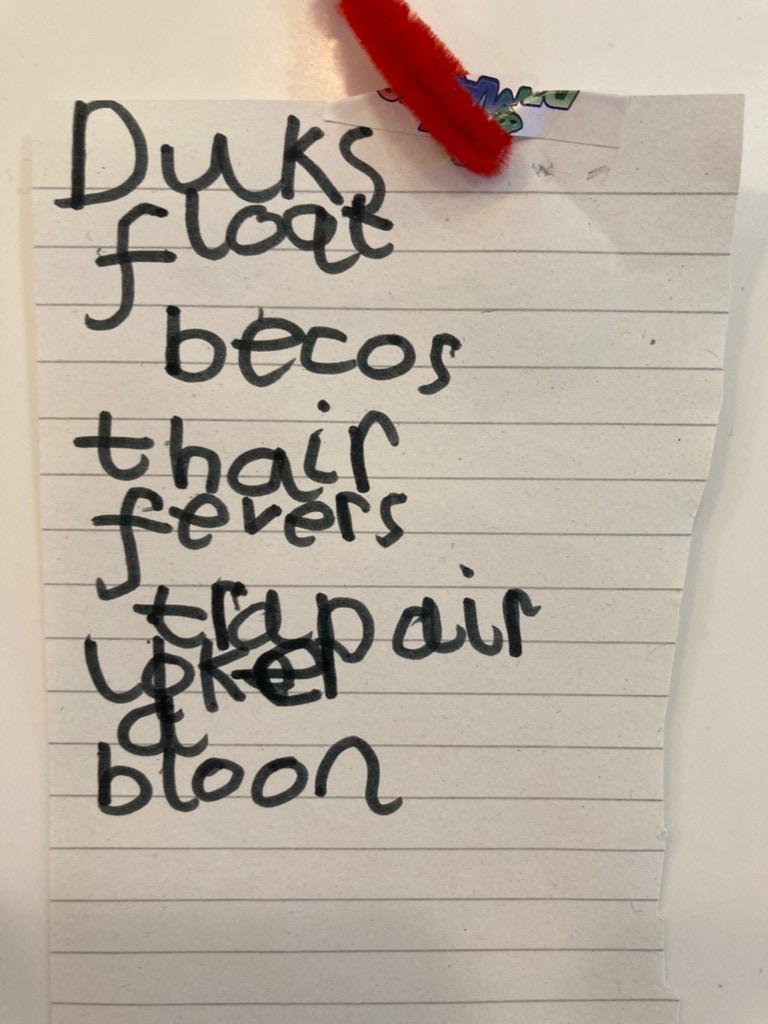 Duks
float
becos
thair
fevers
trap air
a
bloon